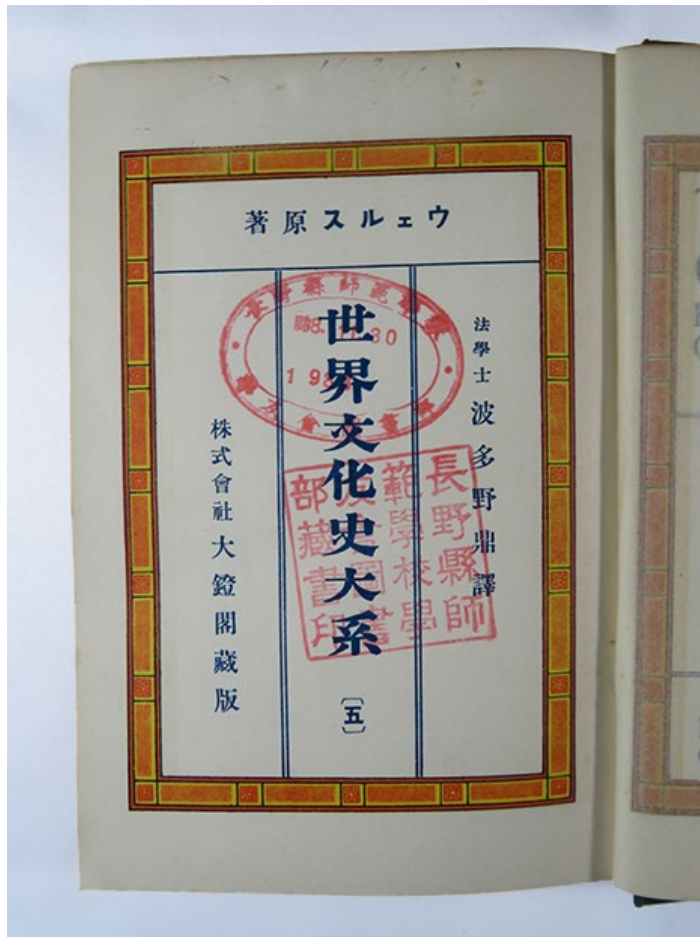 ウェルス原著
法學士 波多野鼎譯
世界文化史大系
〔五〕
株式會社 大鐙閣藏版
長野縣師
範學校學
友會圖書
部藏書印
8.11.30